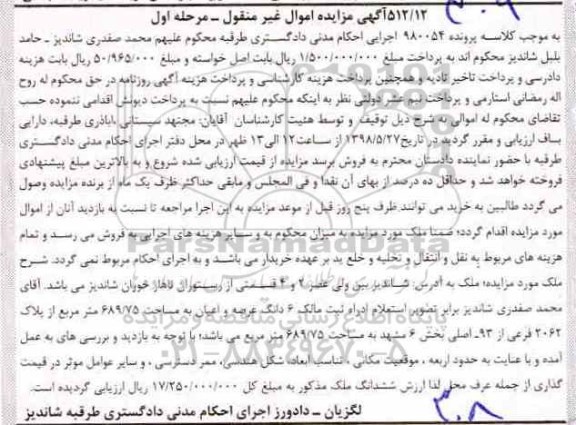 ۵۱۲/۱۲آگهی مزایده اموال غیر منقول ـ مرحله اول
به موجب کلاسه پرونده ۹۸۰۰۵۴ اجرایی احکام مدنی دادگستری طرقبه محکوم علیهم محمد صفدری شاندیز ـ حامد
بلبل شاندیز محکوم اند به پرداخت مبلغ ۱/۵۰۰/۰۰۰/۰۰۰ ریال بابت اصل خواسته و مبلغ ۵۰/۹۶۵/۰۰۰ ریال بابت هزینه
دادرسی و پرداخت تاخیر تادیه و همچنین پرداخت هزینه کارشناسی و پرداخت هزینه آگهی روزنامه در حق محکوم له روح
اله رمضانی استارمی و پرداخت نیم عشر دولتی نظر به اینکه محکوم علیهم نسبت به پرداخت دیونش اقدامی ننموده حسب
تقاضای محکوم له اموالی به شرح ذیل توقیف و توسط هئیت کارشناسان آقایان: مجتهد سیستانی ،اباذری طرقبه، دارایی
بساف ارزیابی و مقرر گردید در تاریخ۱۳۹۸/۵/۲۷ از ساعت۱۲ الی۱۳ ظهر در محل دفتر اجرای احکام مدنی دادگستری
طرقبه با حضور نماینده دادستان محترم به فروش برسد مزایده از قیمت ارزیابی شده شروع و به بالاترین مبلغ پیشنهادی
فروخته خواهد شد و حداقل ده درصد از بهای آن نقدا و فی المجلس و مابقی حداکثر ظرف یک ماه از برنده مزایده وصول
می گردد طالبین به خرید می توانند ظرف پنج روز قبل از موعد مزایده به این اجرا مراجعه تا نسبت به بازدید آنان از اموال
مورد مزایده اقدام گردد؛ ضمنا ملک مورد مزایده به میزان محکوم به و سایر هزینه های اجرایی به فروش می رسد و تمام
هزینه های مربوط به نقل و انتقال و تخلیه و خلع ید بر عهده خریدار می باشد و به اجرای احکام مربوط نمی گردد. شرح
ملک مورد مزایده؛ ملک به آدرس: شاندیز بین ولی عصر ۲ و ۴ قسمتی از رستوران ناهار خوران شاندیز می باشد. آقای
محمد صفدری شاندیز برابر تصویر استعلام اداره ثبت مالک ۶ دانگ عرصه و اعیان به مساحت ۶۸۹/۷۵ متر مربع از پلاک
۲۰۶۲ فرعی از ۹۳ـ اصلی بخش ۶ مشهد به مساحت ۶۸۹/۷۵ متر مربع می باشد؛ با توجه به بازدید و بررسی های به عمل
آمده و با عنایت به حدود اربعه ، موقعیت مکانی ، تناسب ابعاد، شکل هندسی، ممر دسترسی ، و سایر عوامل موثر در قیمت
گذاری از جمله عرف محل لذا ارزش ششدانگ ملک مذکور به مبلغ کل ۱۷/۲۵۰/۰۰۰/۰۰۰ ریال ارزیابی گردیده است.
لگزیان ـ دادورز اجرای احکام مدنی دادگستری طرقبه شاندیز
ParsNamadData
پایگاه اطلاع رسانی مناقصه و مزایده
۰۲۱-۸۸۳۴۹۶۷۰-۵